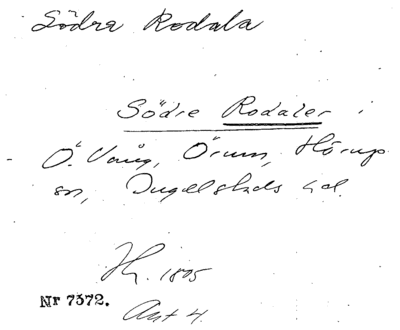 Södra Rodala
Södre Rodaler i
Ö. Vång, Örum, Hörups
sn, Ingelstads hd.
Hr. 1805
Akt 4.
Nr 7372.